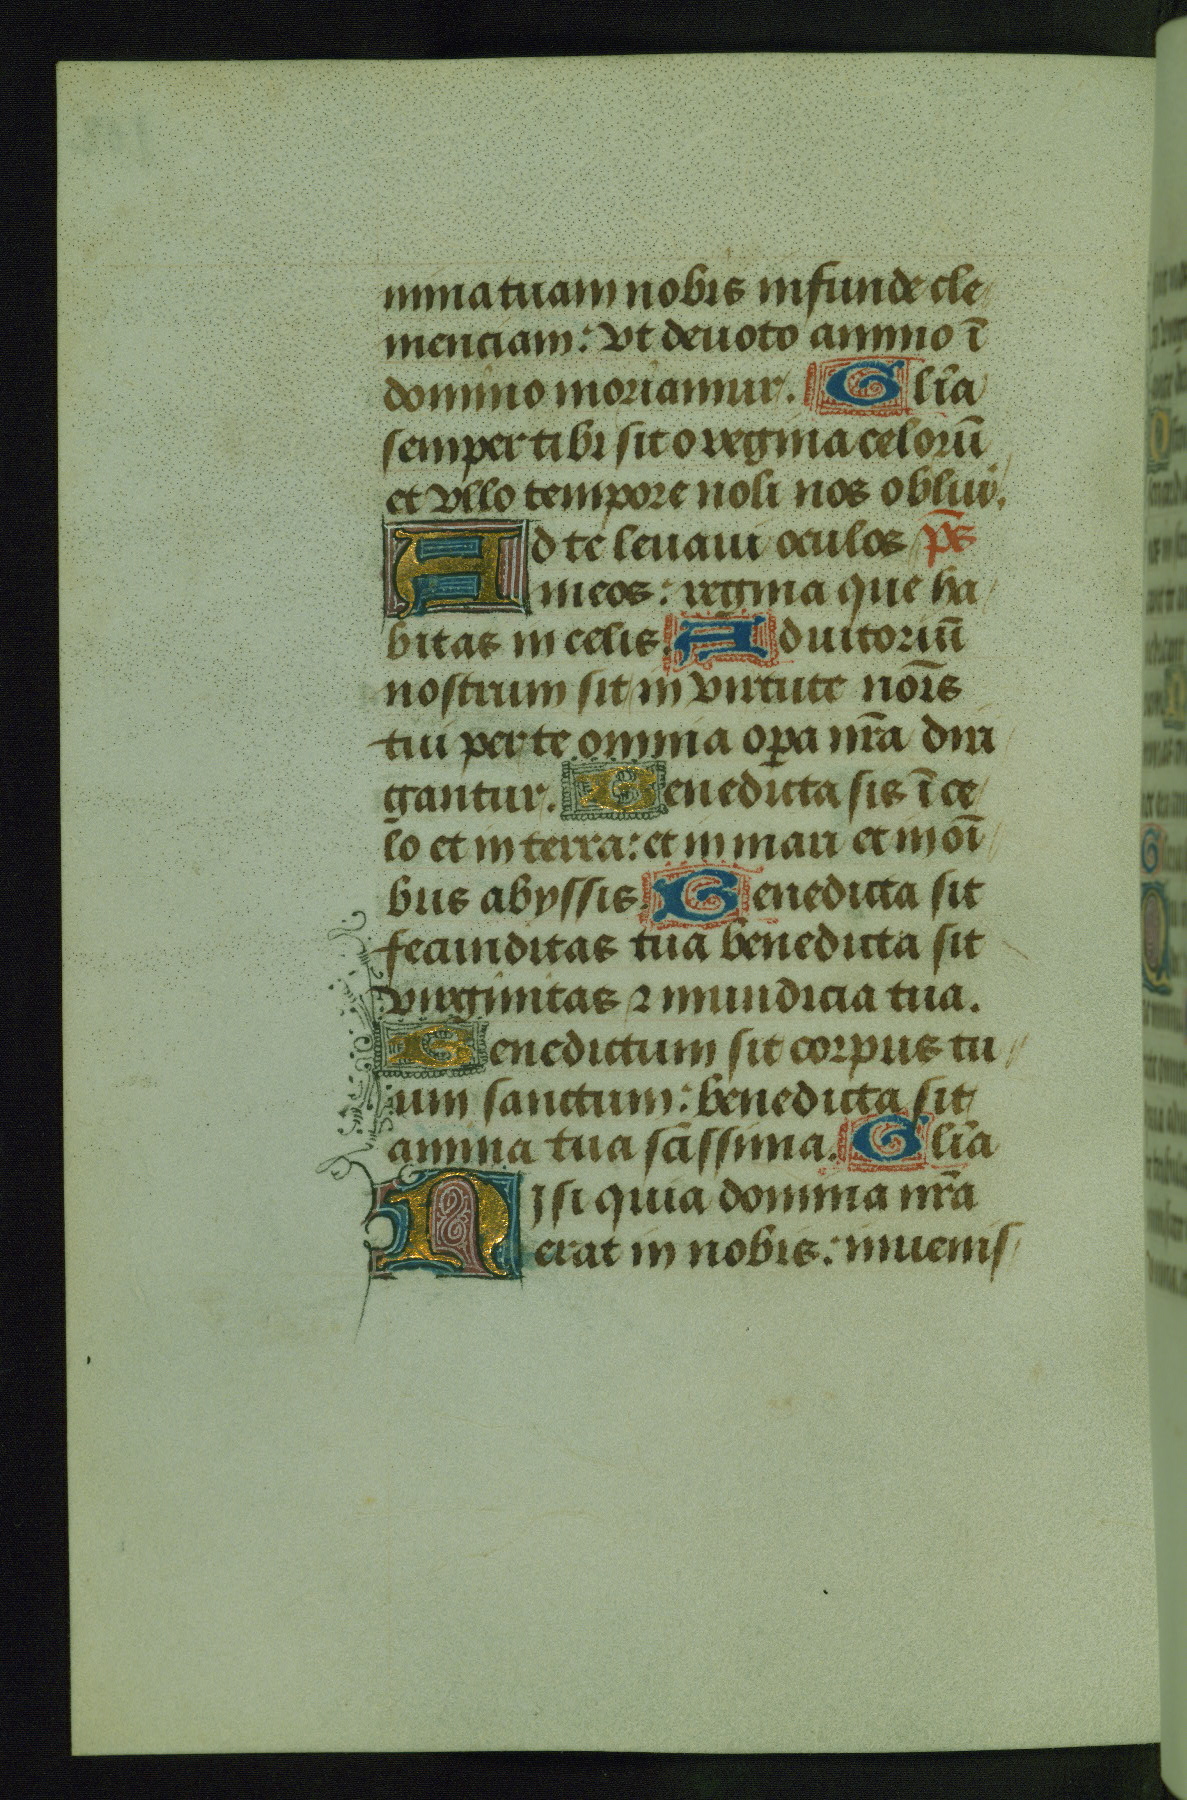 mina tuam nobis infunde cle
menciam: Vt deuoto animo ī
domino moriamur. Glīa
semper tibi sit o regina celorū
et vllo tempore noli nos obliui.
Ad te leuaui oculos p̄s
meos: regina que ha
bitas in celis. Adiutoriū
nostrum sit in virtute nōis
tui per te omnia oꝑa nr̄a diri
gantur. Benedicta sis ī ce
lo et in terra: et in mari et in oī
bus abyssis. Benedicta sit
fecunditas tua benedicta sit
virginitas ⁊ mundicia tua.
Benedictum sit corpus tu
um sanctum: benedicta sit
anima tua sc̄issima. Glīa
Nisi quia domina nr̄a
erat in nobis: inuenis